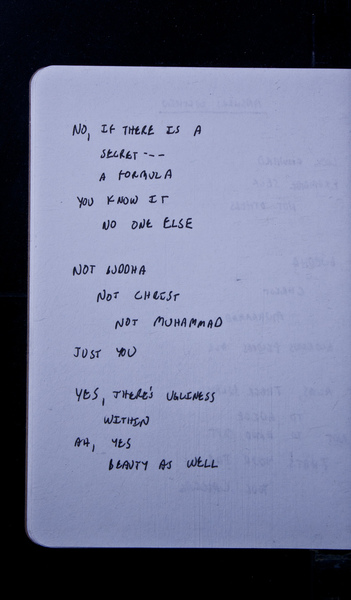 NO, IF THERE IS A
SECRET ---
A FORMULA
YOU KNOW IT
NO ONE ELSE
NOT BUDDHA
NOT CHRIST
NOT MUHAMMAD
JUST YOU
YES, THERE'S UGLINESS
WITHIN
AH, YES
BEAUTY AS WELL